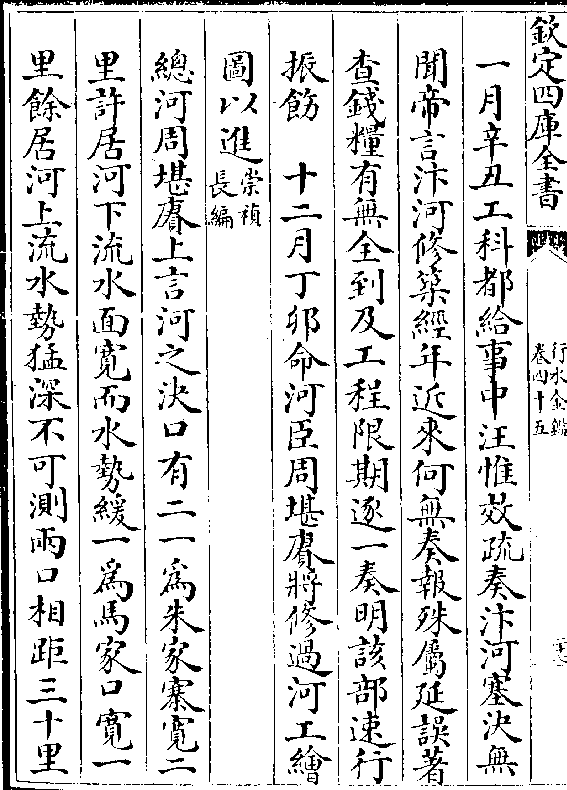 欽定四庫全書
行水金鑑
卷四十五
一月辛丑工科都給事中汪惟效疏奏汴河塞决無
聞帝言汴河修築經年近來何無奏報殊屬延誤著
查錢糧有無全到及工程限期逐一奏明該部速行
振飭　十二月丁卯命河臣周堪賡將修過河工繪
圖以進崇禎長編
總河周堪賡上言河之决口有二一為朱家寨寬二
里許居河下流水面寬而水勢緩一為馬家口寬一
里餘居河上流水勢猛深不可測兩口相距三十里